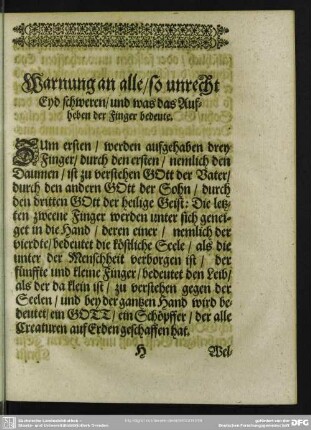 Warnung an alle/ so unrecht
Eyd schweren/ und was das Auf-
heben der Finger bedeute.
ZUm ersten/ werden aufgehaben drey
Finger/ durch den ersten/ nemlich den
Daumen/ ist zu verstehen GOtt der Vater/
durch den andern GOtt der Sohn/ durch
den dritten GOtt der heilige Geist: Die letz-
ten zweene Finger werden unter sich genei-
get in die Hand/ deren einer/ nemlich der
vierdte/ bedeutet die köstliche Seele/ als die
unter der Menschheit verborgen ist/ der
fünffte und kleine Finger/ bedeutet den Leib/
als der da klein ist/ zu verstehen gegen der
Seelen/ und bey der gantzen Hand wird be-
deutet/ ein GOTT/ ein Schöpffer/ der alle
Creaturen auf Erden geschaffen hat.
H Wel-
DFG